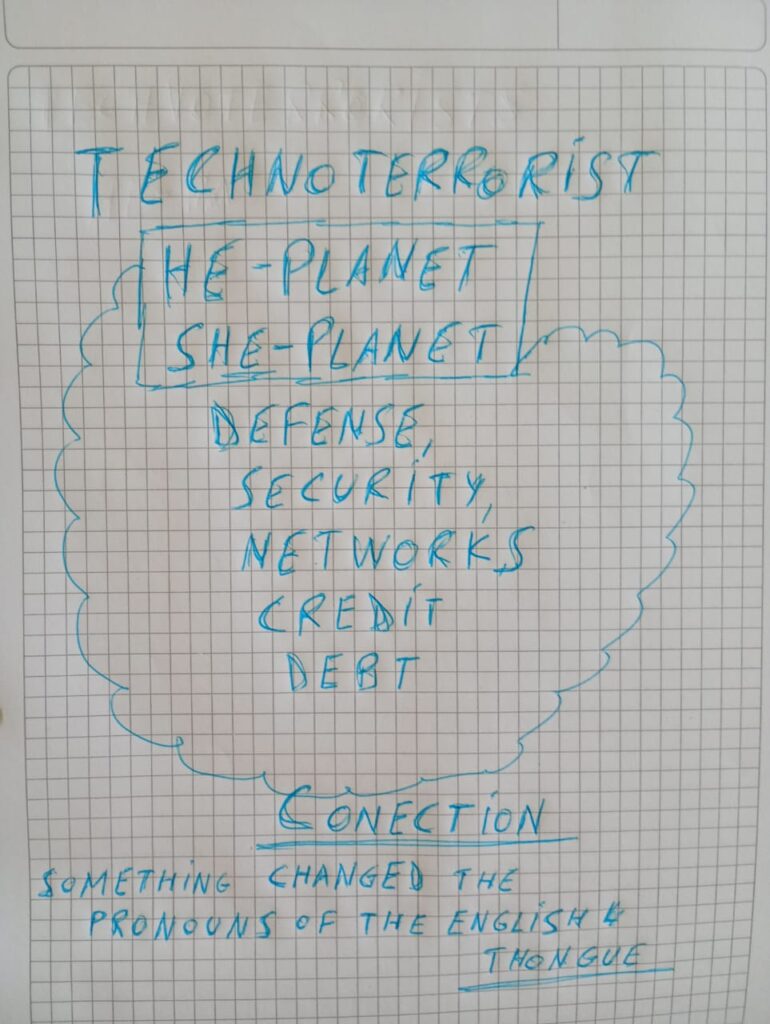 TECHNOTERRORIST
HE-PLANET
SHE-PLANET
DEFENSE,
SECURITY,
NETWORKS
CREDIT
DEBT
CONECTION
SOMETHING CHANGED THE
PRONOUNS OF THE ENGLISH
THONGUE